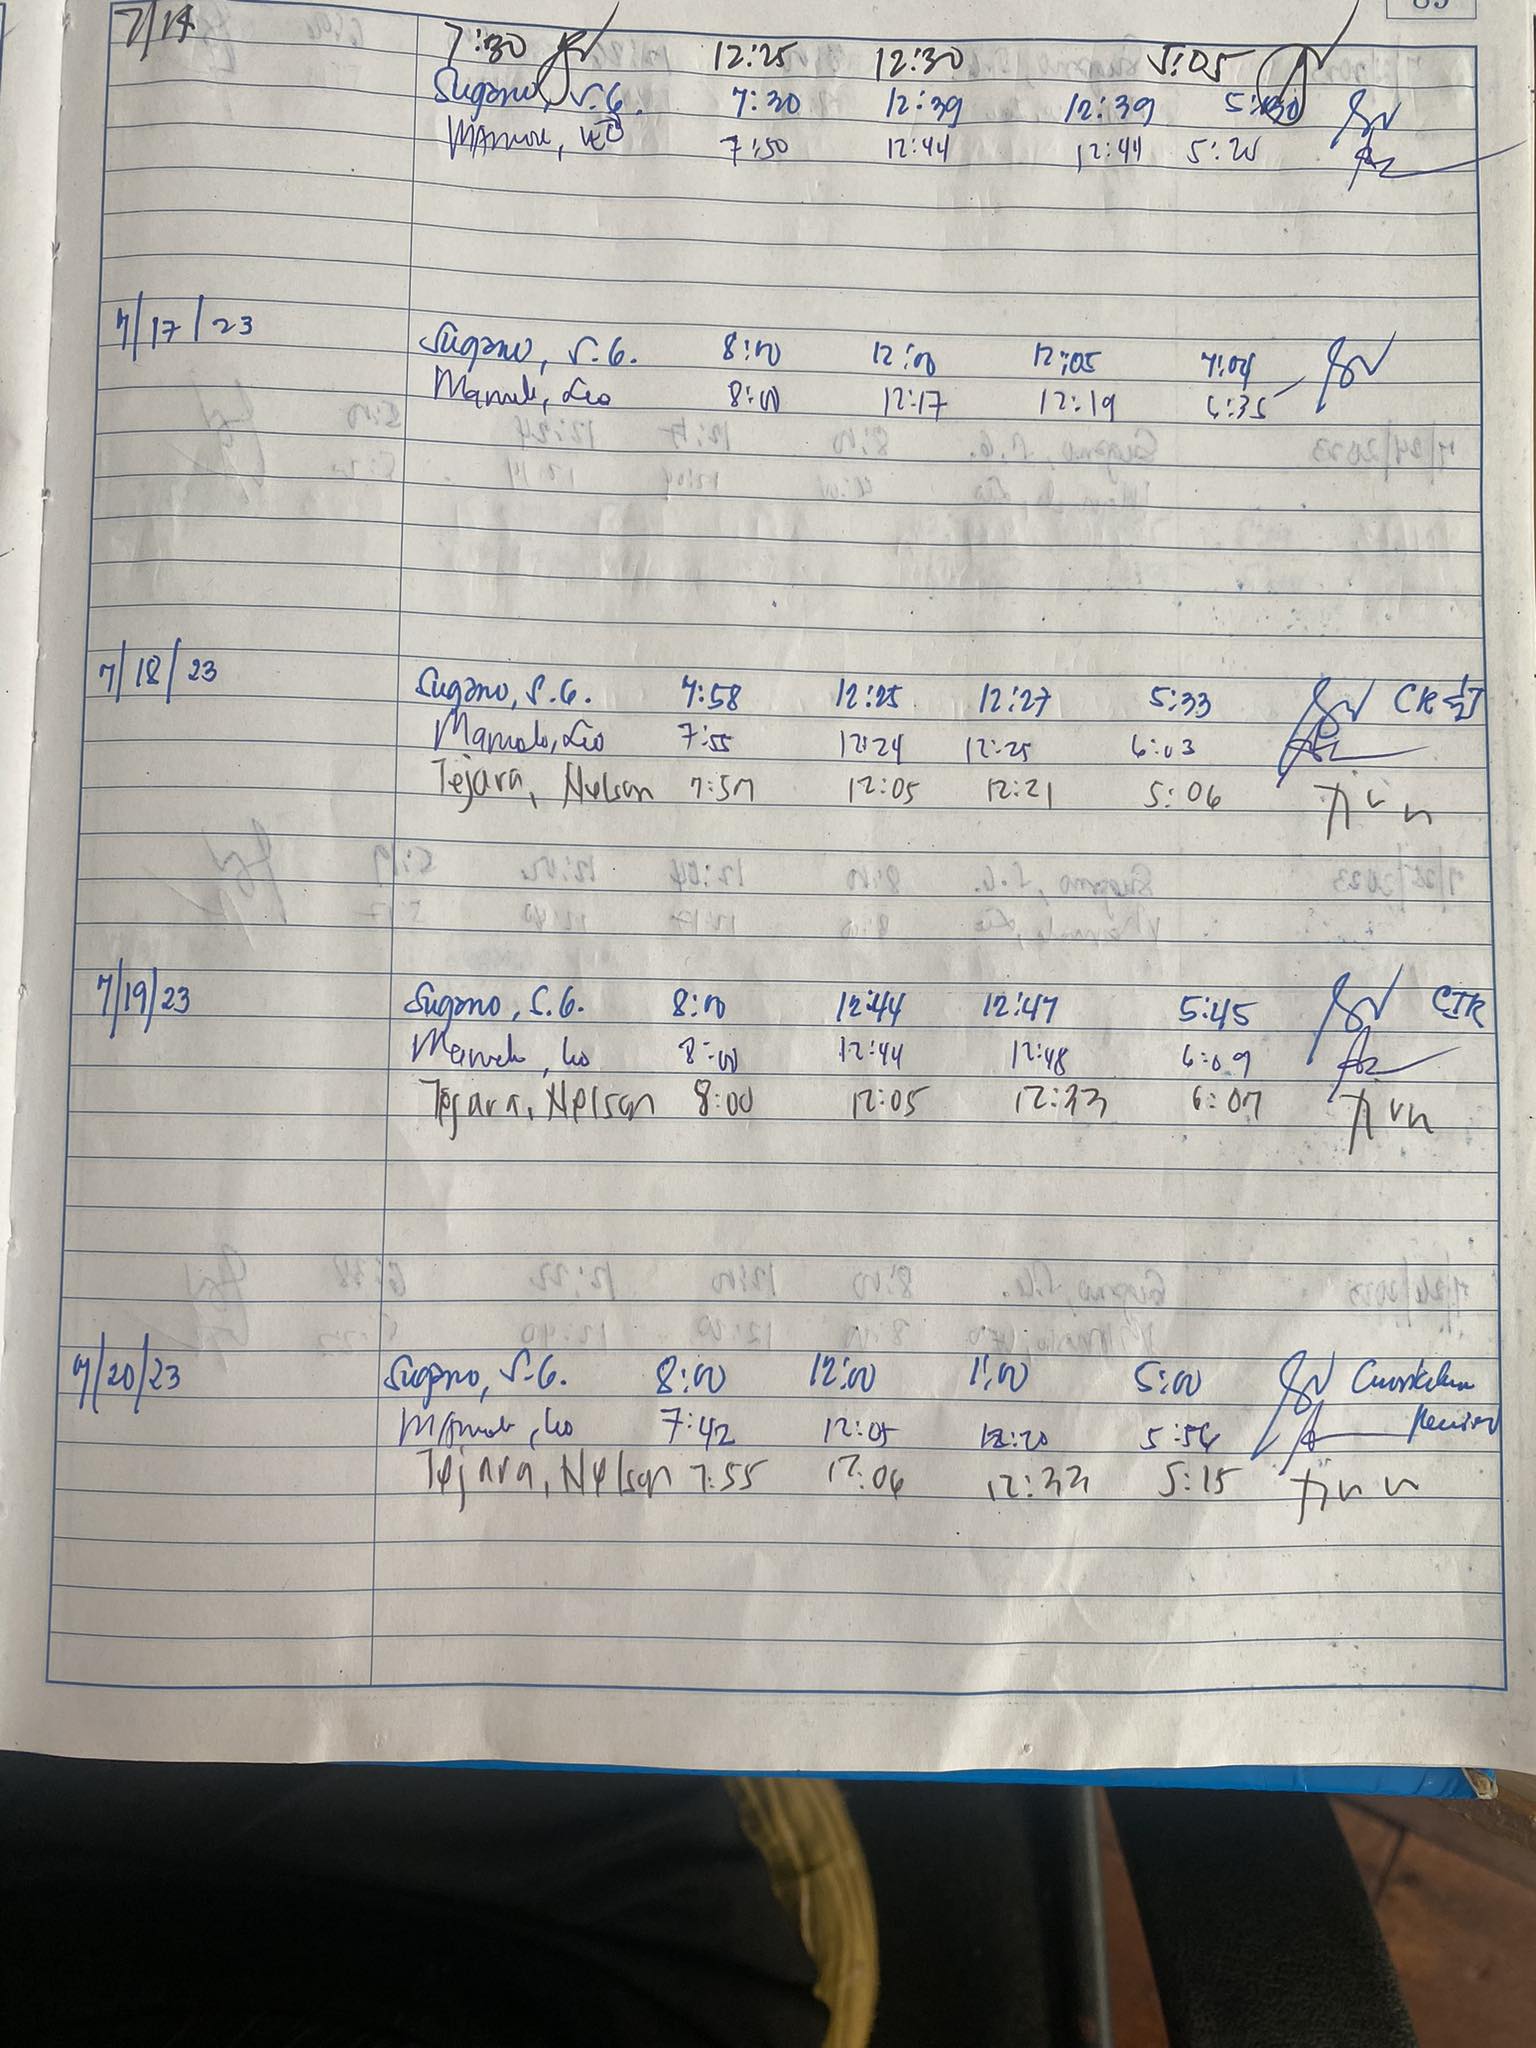 7/14 7:30 12:25 12:30 5:05
Sugano, S.G. 7:30 12:39 12:39 5:30
7:50 12:44 12:44
7/17/23 Sugano, S.G. 8:00 12:00 12:05 7:04
Manolo, Leo 8:00 12:17 12:19 6:35
7/18/23 Sugano, S.G. 7:58 12:25 12:27 5:33
Manolo, Leo 7:55 12:24 12:25 6:03
Tejara, Nelson 7:57 12:05 12:21 5:06
7/19/23 Sugano, S.G. 8:00 12:44 12:47 5:45 CTR
Manolo, Leo 8:00 12:44 12:48 6:09
Tejara, Nelson 8:00 12:05 12:33 6:07
7/20/23 Sugano, S.G. 8:00 12:00 1:00 5:00
Manolo, Leo 7:42 12:05 12:20 5:56
Tejara, Nelson 7:55 12:06 12:33 5:15